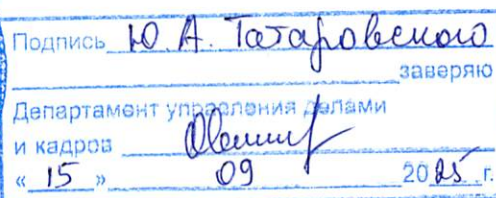 Подпись Ю. А. Татаровского
заверяю
Департамент управления делами
и кадров
« 15 » 09 2025 г.